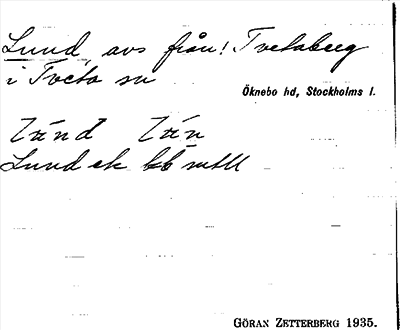 Lund, avs från: Tvetaberg
i Tveta sn
Öknebo hd, Stockholms l.
Lund ek bb
GÖRAN ZETTERBERG 1935.